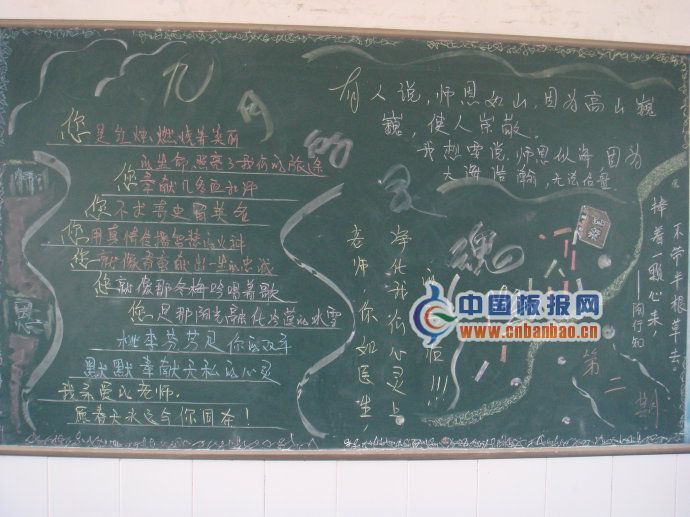 九月的
灵魂
您是红烛燃烧着美丽
的生命,照亮了我们成长途
您奉献几多
您不求青史留英名
您用真情传播智慧的火种
您就像春蚕献出一生的忠诚
您就像那冬梅吟唱着歌
您是那阳光融化冷漠的冰雪
桃李芬芳是你的
默默奉献无私的心灵
我亲爱的老师,
愿春天永远与你同在!
有人说,师恩如山,因为高山巍
巍,使人崇敬。
我想要说,师恩似海,因为
大海浩瀚,无法估量
老师,你如医生,
净化我们心灵上
师
恩
捧着一颗心来
不带半根草去
第二期
中国板报网
www.cnbanbao.cn